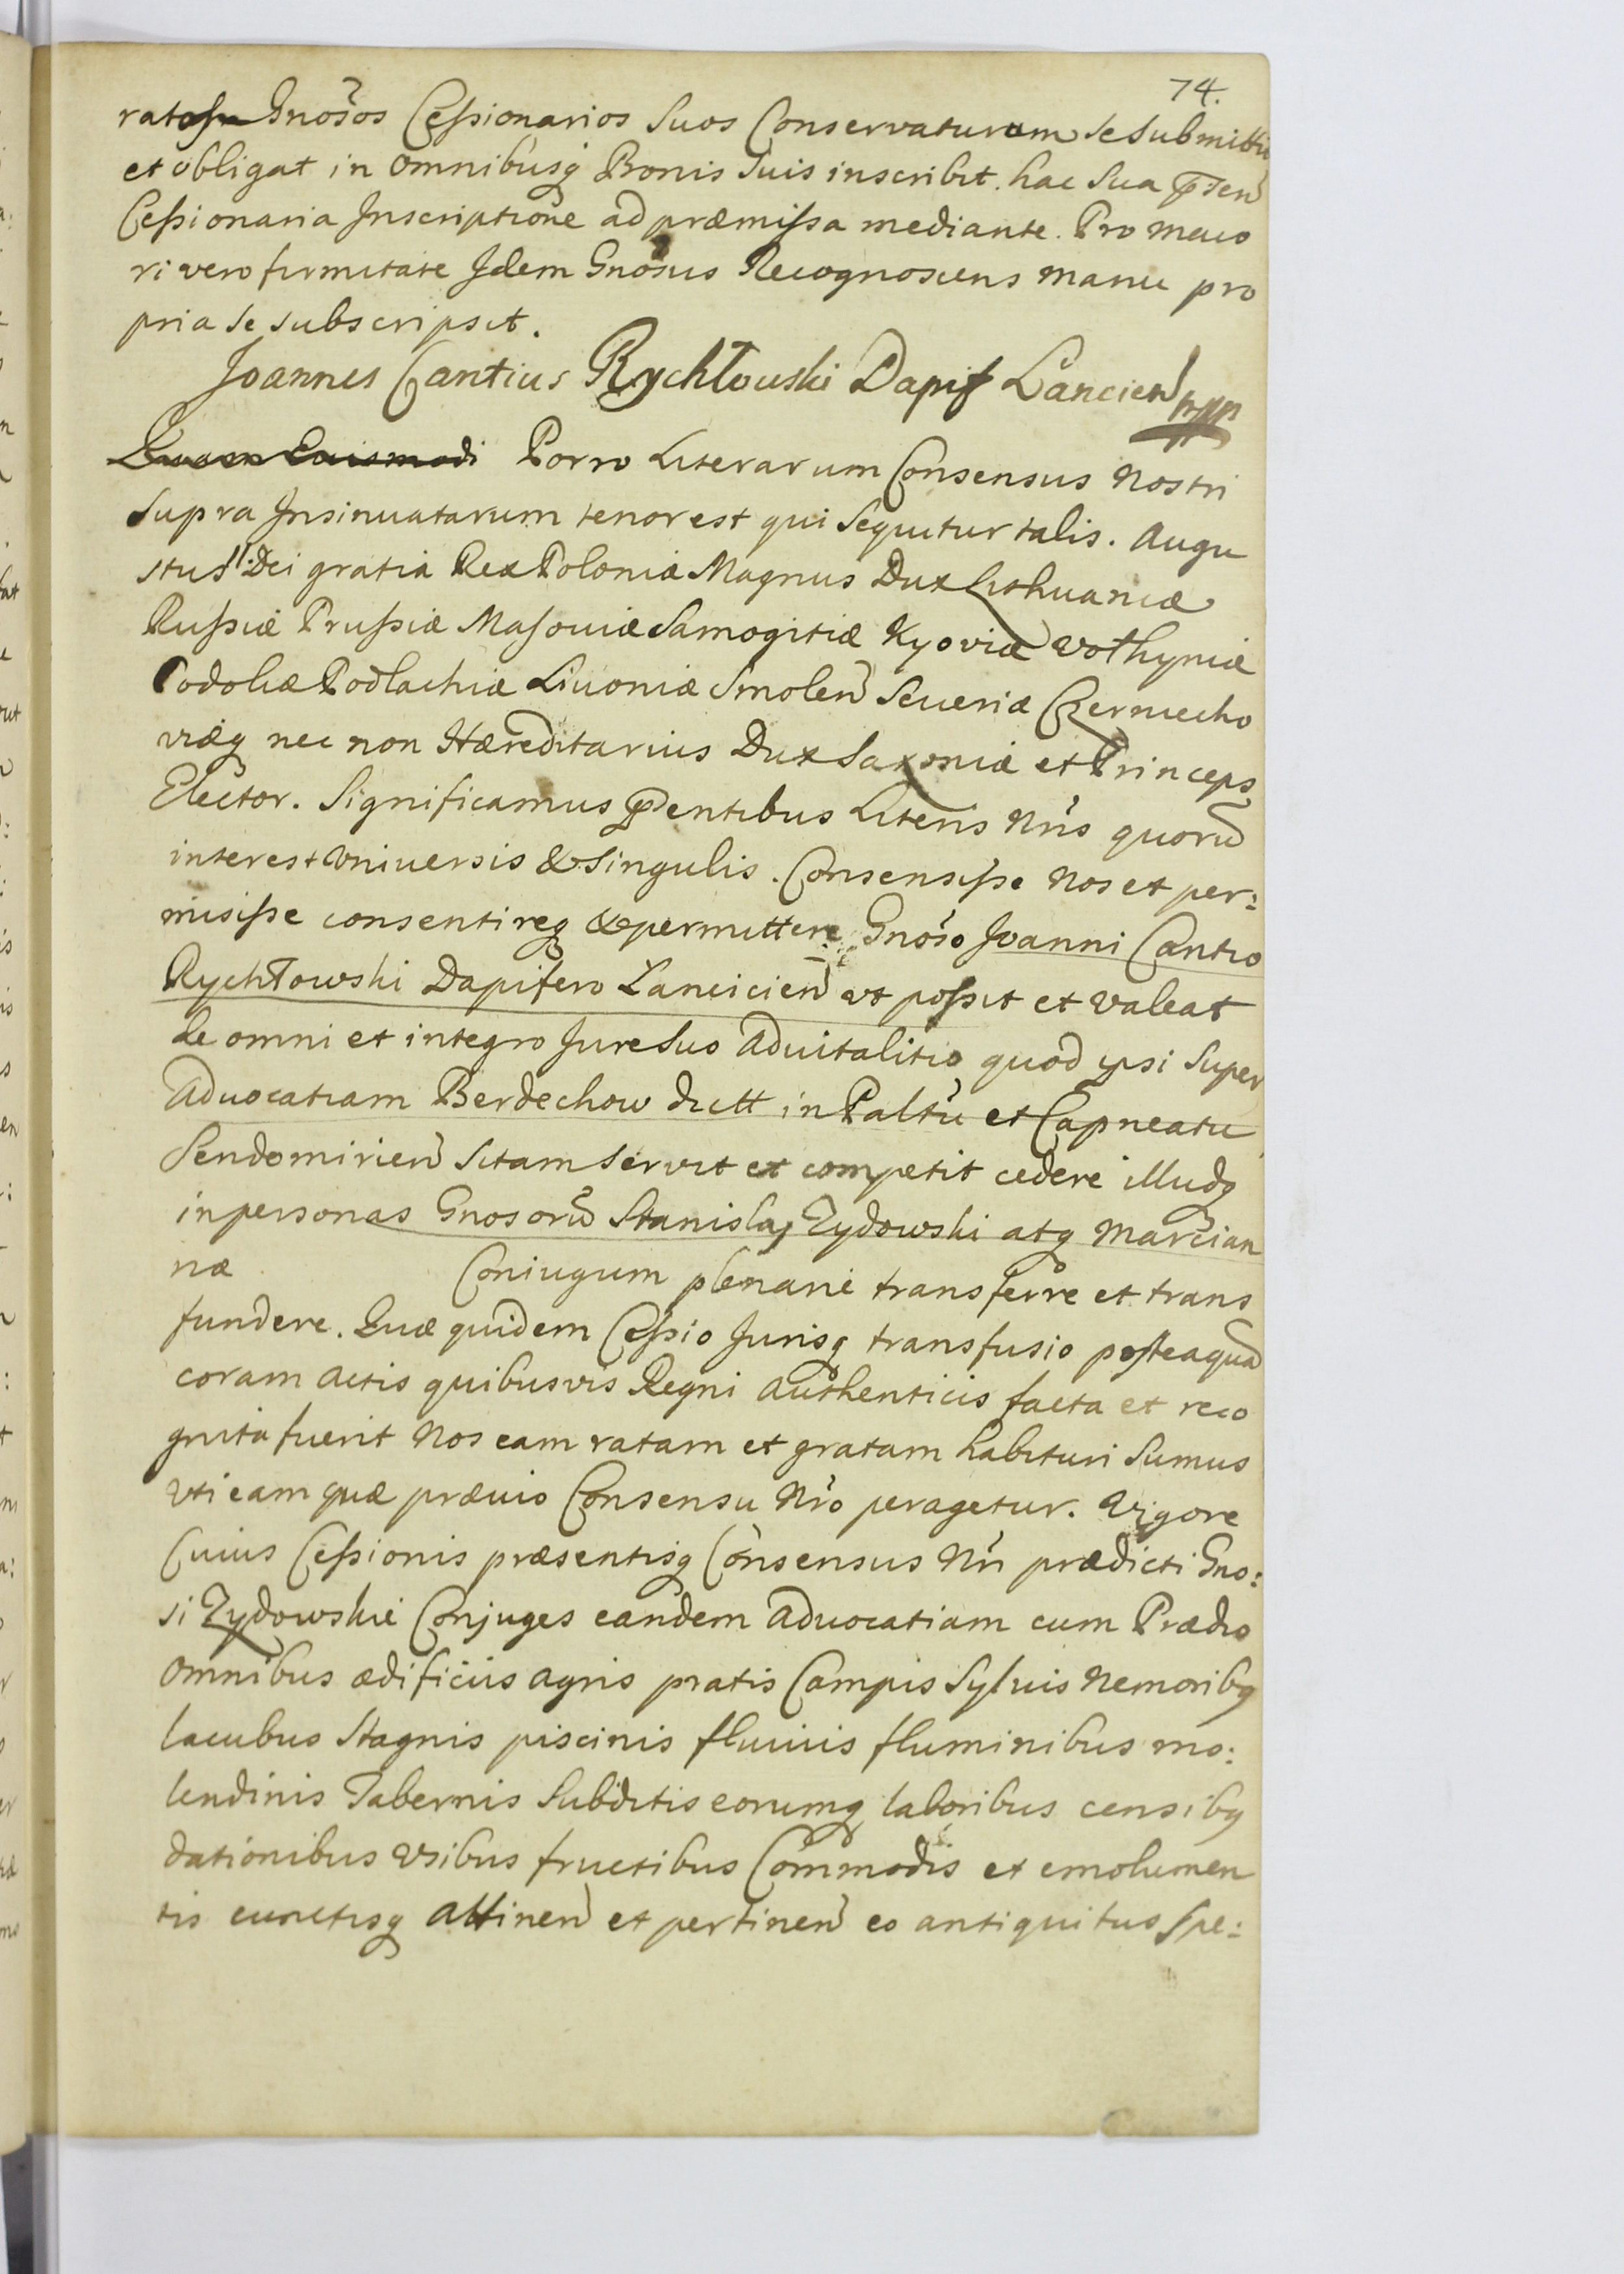 74.
ratos Gnosos Cessionarios Suos Conservaturum se submittit
et obligat in omnibusq Bonis suis inscribit. hac sua pñsen
Cessionaria Inscriptione ad præmissa mediante. Pro maio
ri vero firmitate Idem Gnosus Recognoscens manu pro
pria se subscripsit.
Joannes Cantius Rychłowski Dapif Lancicien mpp
Porro Literarum Consensus Nostri
supra Insinuatarum tenor est qui sequitur talis. Augu
stus II: Dei gratia Rex Poloniæ Magnus Dux Lithuaniæ
Russiæ Prussiæ Masouiæ Samogitiæ Kyoviæ Vołhyniæ
Podoliæ Podlachiæ Liuoniæ Smolen Seueriæ Czerniecho
viæq nec non Hæreditarius Dux Saxoniæ et Princeps
Elector. Significamus pñsentibus Literis Nris quorũ
interest Vniuersis & Singulis. Consensisse Nos et per:
misisse consentireq & permittere Gnoso Joanni Cantio
Rychłowski Dapifero Lancicien vt possit et valeat
de omni et integro Jure suo aduitalitio quod ipsi super
aduocatiam Berdechow dictt in Paltu et Capneatu
Sendomirien sitam servit et competit cedere illudq
in personas Gnosorũ Stanislaj Zydowski atq Marcian
næ Coniugum plenarie transferre et trans
fundere. Quæ quidem Cessio Jurisq transfusio posteaquã
coram actis quibusvis Regni authenticis facta et reco
gnita fuerit Nos eam ratam et gratam habituri sumus
vti eam quæ præuio Consensu Nro peragetur. Vigore
Cuius Cessionis præsentisq Consensus Nri prædicti Gno:
si Zydowskie Conjuges eandem aduocatiam cum Prædio
omnibus ædificiis agris pratis Campis Syluis Nemoribq
lacubus Stagnis piscinis fluuiis fluminibus mo:
lendinis Tabernis Subditis eorumq laboribus censibq
dationibus vsibus fructibus Commodis et emolumen
tis cunctisq attinen et pertinen eo antiquitus spe: